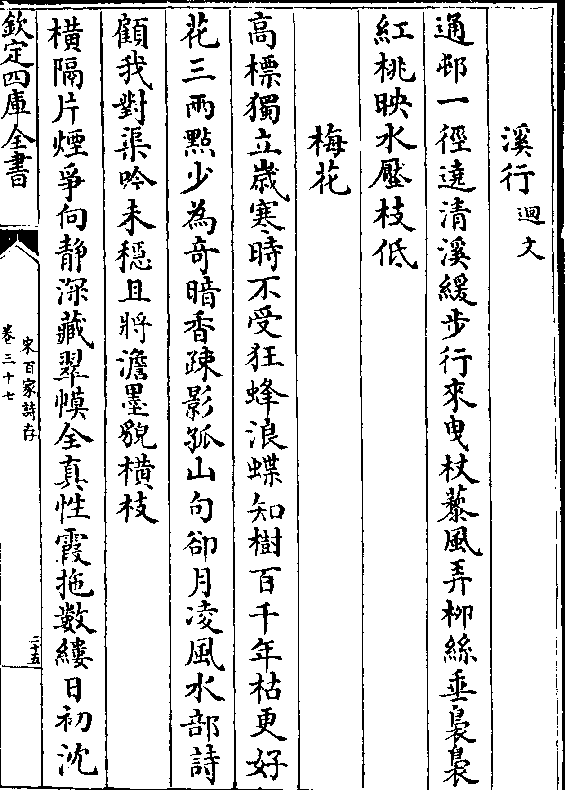 溪行迴文
通邨一徑遶清溪緩步行來曳杖藜風弄栁絲垂裊裊
紅桃映水壓枝低
梅花
高標獨立嵗寒時不受狂蜂浪蝶知樹百千年枯更好
花三兩㸃少為奇暗香疎影孤山句卻月凌風水部詩
顧我對渠吟未穩且將澹墨貌橫枝
橫隔片煙爭向靜深藏翠幙全真性霞拖數縷日初沈
欽定四庫全書
宋百家詩存
卷三十七
二十五